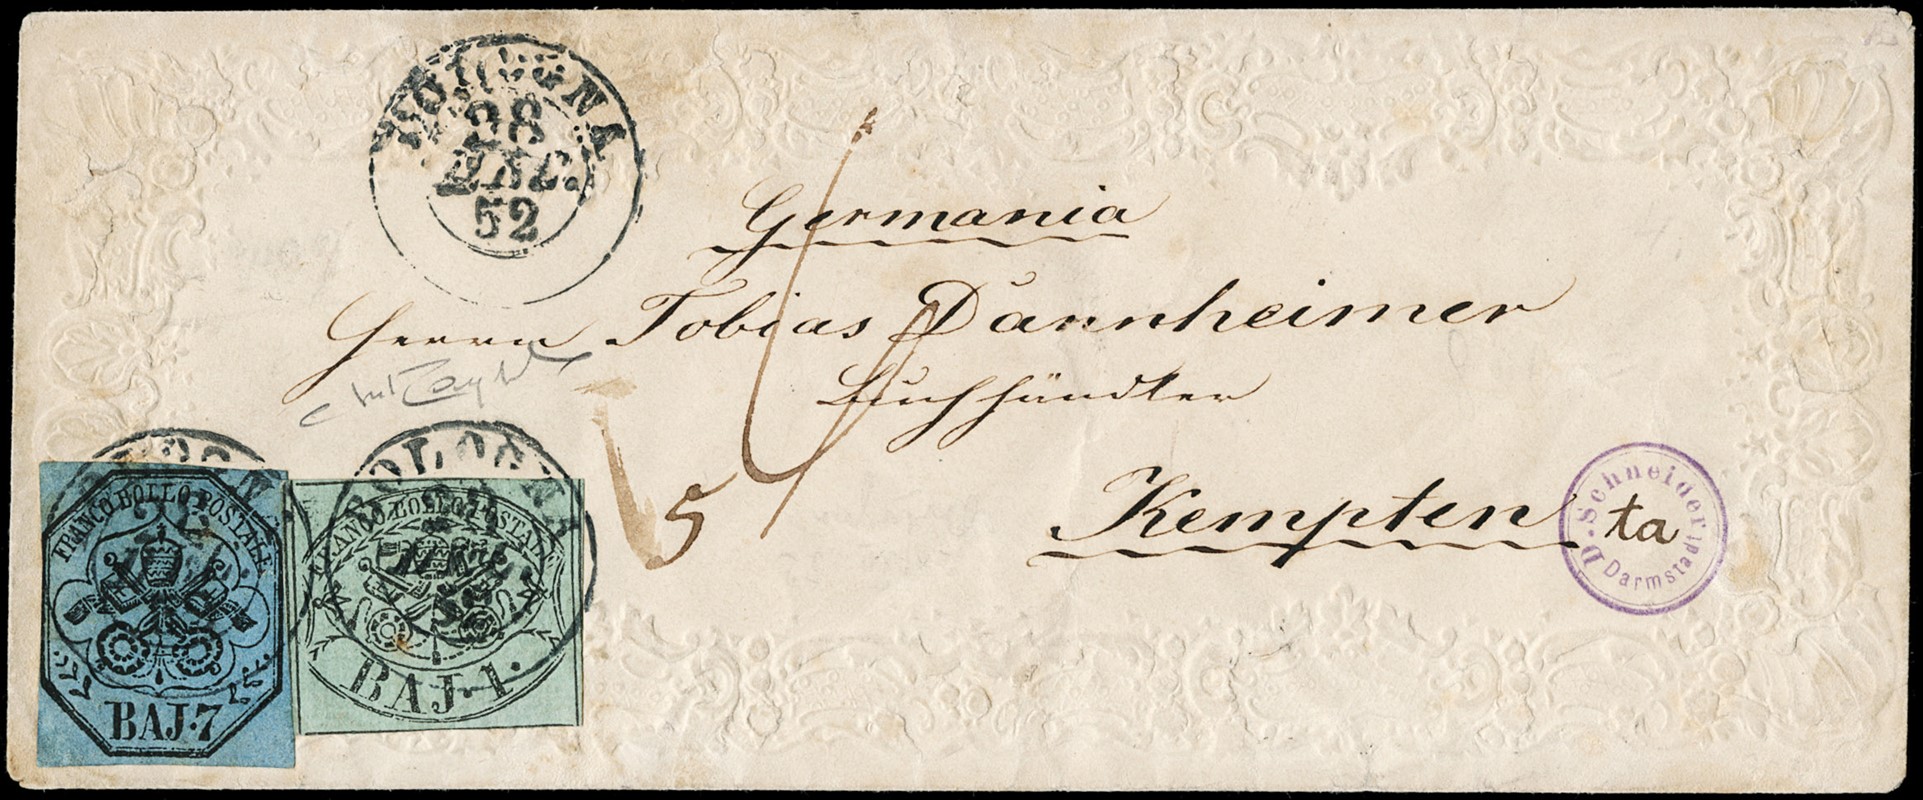 BOLOGNA
28
DIC.
52
Germania
Herrn Tobias Dannheimer
Buchhändler
5
Kempten
ta
D. Schneider
Darmstadt
BOLOGNA
FRANCO BOLLO POSTALE
BAJ. 7
FRANCO BOLLO POSTALE
BAJ. 1.